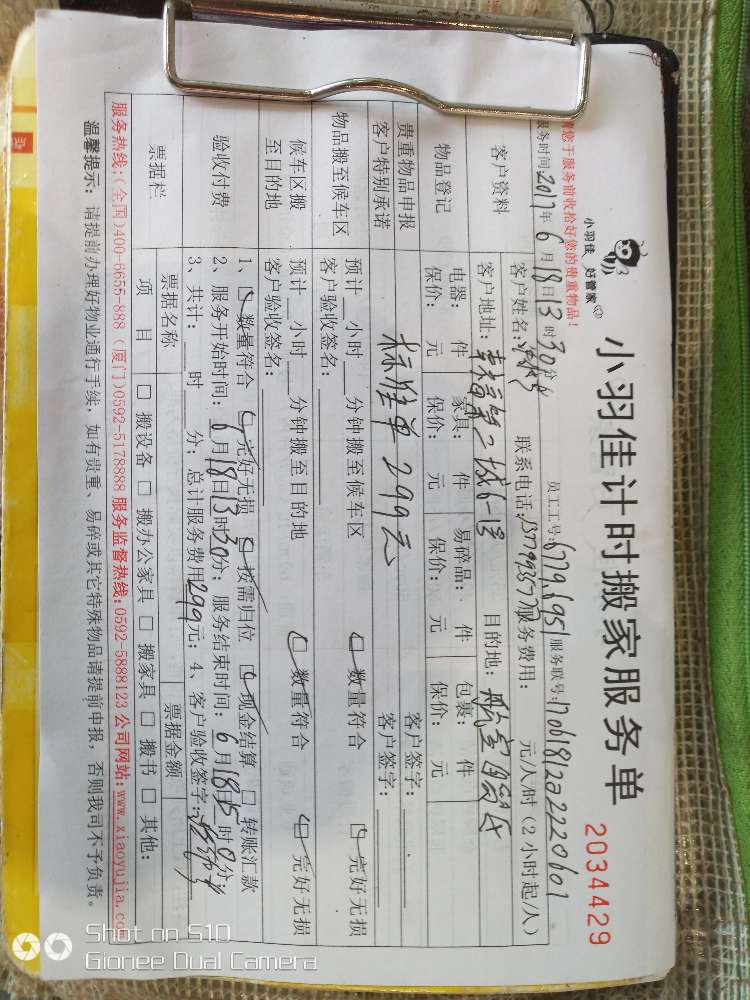 小羽佳计时搬家服务单
2034429
小羽佳 好管家
请您于服务前收拾好您的贵重物品!
服务时间:2017年6月18日13时30分 员工工号:6779.6951 服务联号:
客户资料
客户姓名: 联系电话: 服务费用: 元/人/时(2小时起/人)
客户地址: 目的地:
物品登记
电器: 件 家具: 件 易碎品: 件 包裹: 件
保价: 元 保价: 元 保价: 元 保价: 元
贵重物品申报 客户签字:
客户特别承诺 客户签字:
标准单299元
物品搬至候车区
预计 小时 分钟搬至候车区 □数量符合 □完好无损
客户验收签名:
候车区搬至目的地
预计 小时 分钟搬至目的地 □数量符合 □完好无损
客户验收签名:
验收付费
1、□数量符合 □完好无损 □按需归位 □现金结算 □转账汇款
2、服务开始时间:6月18日13时30分;服务结束时间:6月18日15时0分;
3、共计: 时 分;总计服务费用299元;4、客户验收签字:
票据栏
票据名称 票据金额
项 目 □搬设备 □搬办公家具 □搬家具 □搬书 □其他:
服务热线:(全国)400-6655-888 (厦门)0592-5178888 服务监督热线:0592-5888123 公司网站:www.xiaoyujia.co
温馨提示: 请提前办理好物业通行手续,如有贵重、易碎或其它特殊物品请提前申报,否则我司不予负责。
Shot on S10
Gionee Dual Camera